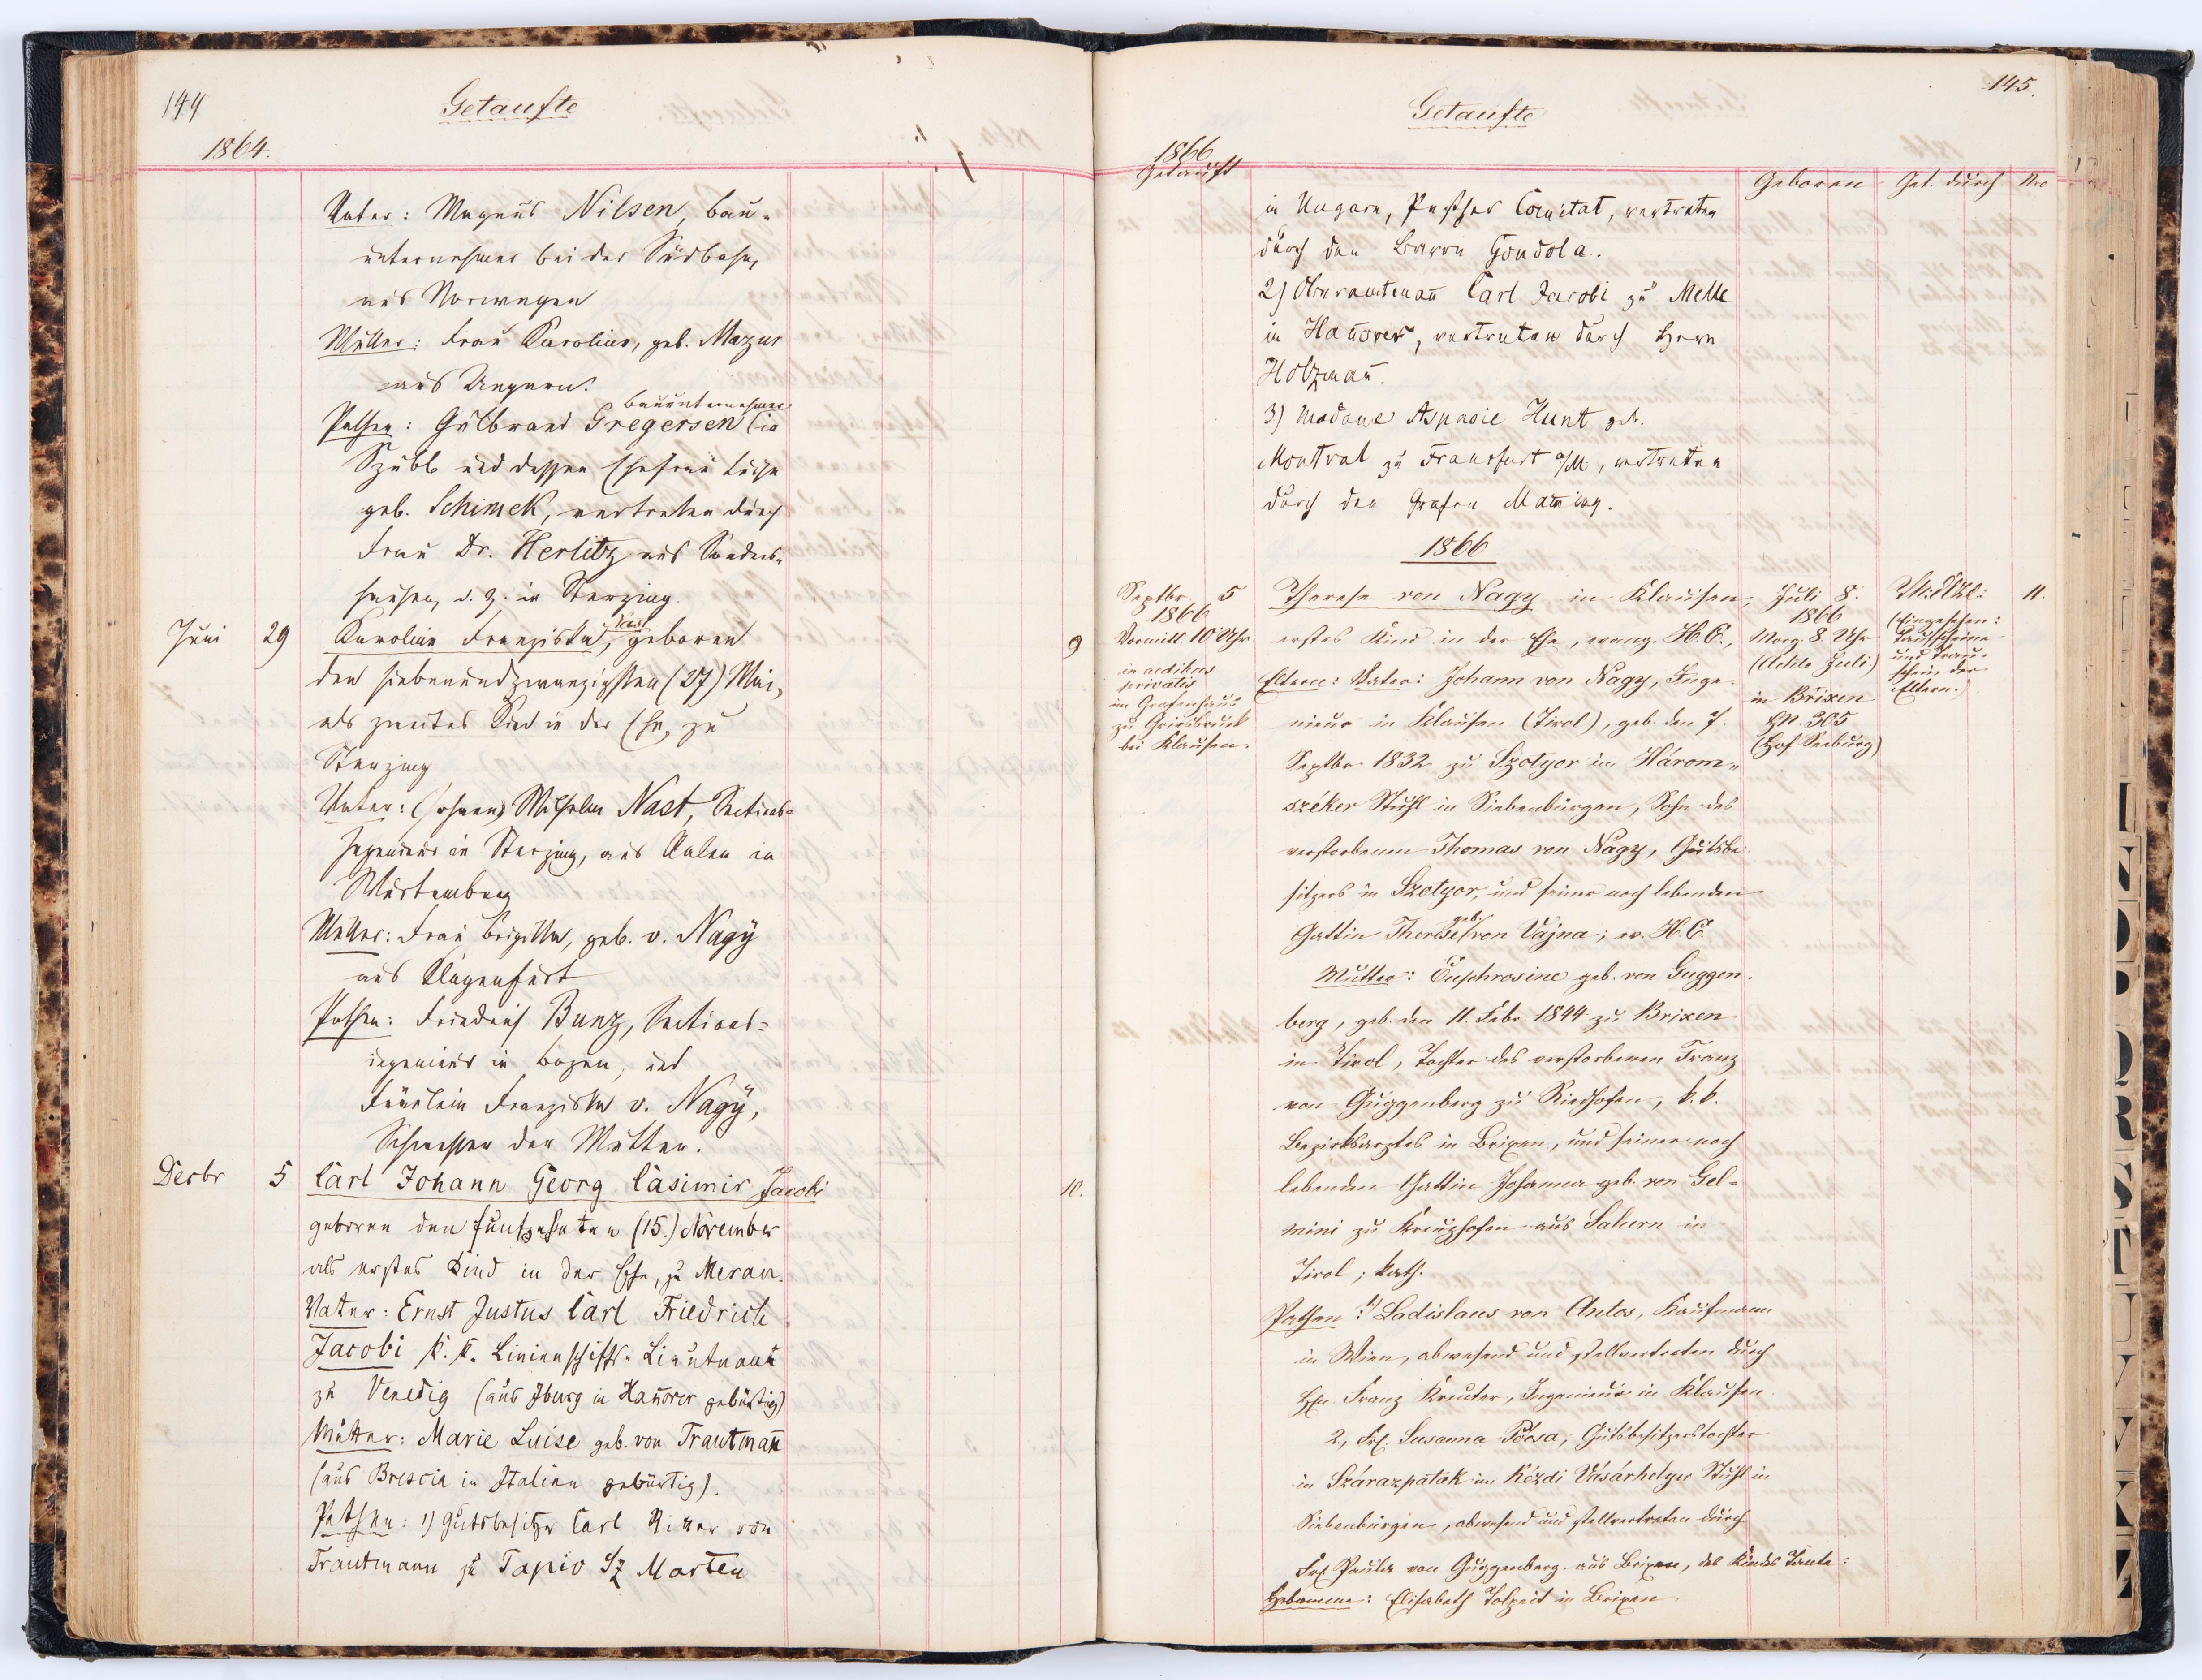 144
Getaufte
1864.
Vater: Magnus Nilsen, Bau-
unternehmer bei der Südbahn,
aus Norwegen
Mutter: Frau Karoline, geb. Mazur
aus Ungarn.
Bauunternehmer
Pathen: Gulbrand Gregersen in
und dessen Ehefrau Luise
geb. Schimek, vertreten durch
Frau Dr. Herlitz aus Sonders-
hausen, d. Z. in Sterzing.
Juni 29 Karoline Franziska, Nast geboren 9
den siebenundzwanzigsten (27) Mai,
als zweites Kind in der Ehe, zu
Sterzing
Vater: (Johann) Wilhelm Nast, Sections-
Ingenieur in Sterzing, aus Aalen in
Würtemberg
Mutter: Frau Brigitta, geb. v. Nagÿ
aus Klagenfurt
Pathen: Friedrich Bunz, Sections-
ingenieur in Bozen, und
Fräulein Franziska v. Nagÿ,
Schwester der Mutter.
Decbr 5 Carl Johann Georg Casimir Jacobi 10.
geboren den funfzehnten (15.) November
als erstes Kind in der Ehe, zu Meran.
Vater: Ernst Justus Carl Friedrich
Jacobi k. k. Linienschiffs-Lieutnant
zu Venedig (aus Iburg in Hanover gebürtig)
Mutter: Marie Luise geb. von Trautmann
(aus Brescia in Italien gebürtig).
Pathen: 1) Gutsbesitzer Carl Ritter von
Trautmann zu Tapio Sz Marten
145.
Getaufte
1866
Getauft Geboren Get. durch Nro
in Ungarn, Pesther Comitat, vertreten
durch den Baron Gondola.
2) Oberamtmann Carl Jacobi zu Melle
in Hanover, vertreten durch Herrn
Holzmann.
3) Madame Aspasie Hunt geb.
Montval zu Frankfurt a/M, vertreten
durch den Grafen
1866
Septbr. 5
1866
Vormitt. 10 Uhr
in aedibus
privatis
im Grafenhaus
zu Griesbruck
bei Klausen.
Therese von Nagy in Klausen,
erstes Kind in der Ehe, evang. H.C.,
Eltern: Vater: Johann von Nagy, Inge-
nieur in Klausen (Tirol), geb. den 7.
Septbr. 1832 zu Szotyor im Három-
széker Stuhl in Siebenbürgen, Sohn des
verstorbenen Thomas von Nagy, Gutsbe-
sitzers in Szotyor, und seiner noch lebenden
Gattin Therese geb. von Vájna; ev. H.C.
Mutter: Euphrosine geb. von Guggen-
berg, geb. den 11. Febr. 1844 zu Brixen
in Tirol, Tochter des verstorbenen Franz
von Guggenberg zu Riedhofen, k. k.
Bezirksarztes in Brixen, und seiner noch
lebenden Gattin Johanna geb. von Gel-
mini zu Kreuzhofen aus Salurn in
Tirol; kath.
Pathen: 1) Ladislaus von Antos, Kaufmann
in Wien, abwesend und stellvertreten durch
Hrn. Franz Kreuter, Ingenieur in Klausen.
2, Frl. Susanna Pocsa, Gutsbesitzerstochter
in Szárazpatak im Kézdi Vásárhelyer Stuhl in
Siebenbürgen, abwesend und stellvertreten durch
Frl. Paula von Guggenberg aus Brixen, des Kindes Tante.
Hebamme: Elisabeth in Brixen
Juli 8.
1866
Morg. 8 Uhr
(Achte Juli)
in Brixen
HN. 305
(Hof Seeburg)
(Eingesehen:
Taufscheine
und Trau-
schein der
Eltern.)
11.